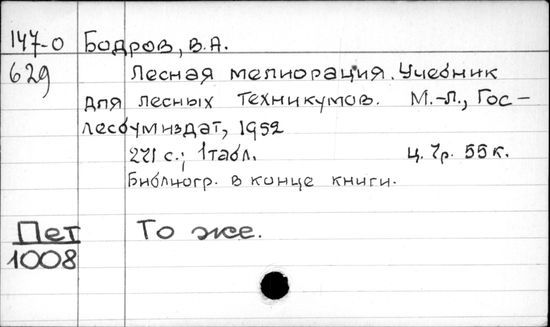 147-0 Бодров, В.А.
629 Лесная мелиорация. Учебник
для лесных техникумов. М.-Л., Гос-
лесбумиздат, 1952
271 с.; 1 табл. ц. 7р. 55 к.
Библиогр. в конце книги.
Пет То же.
1008